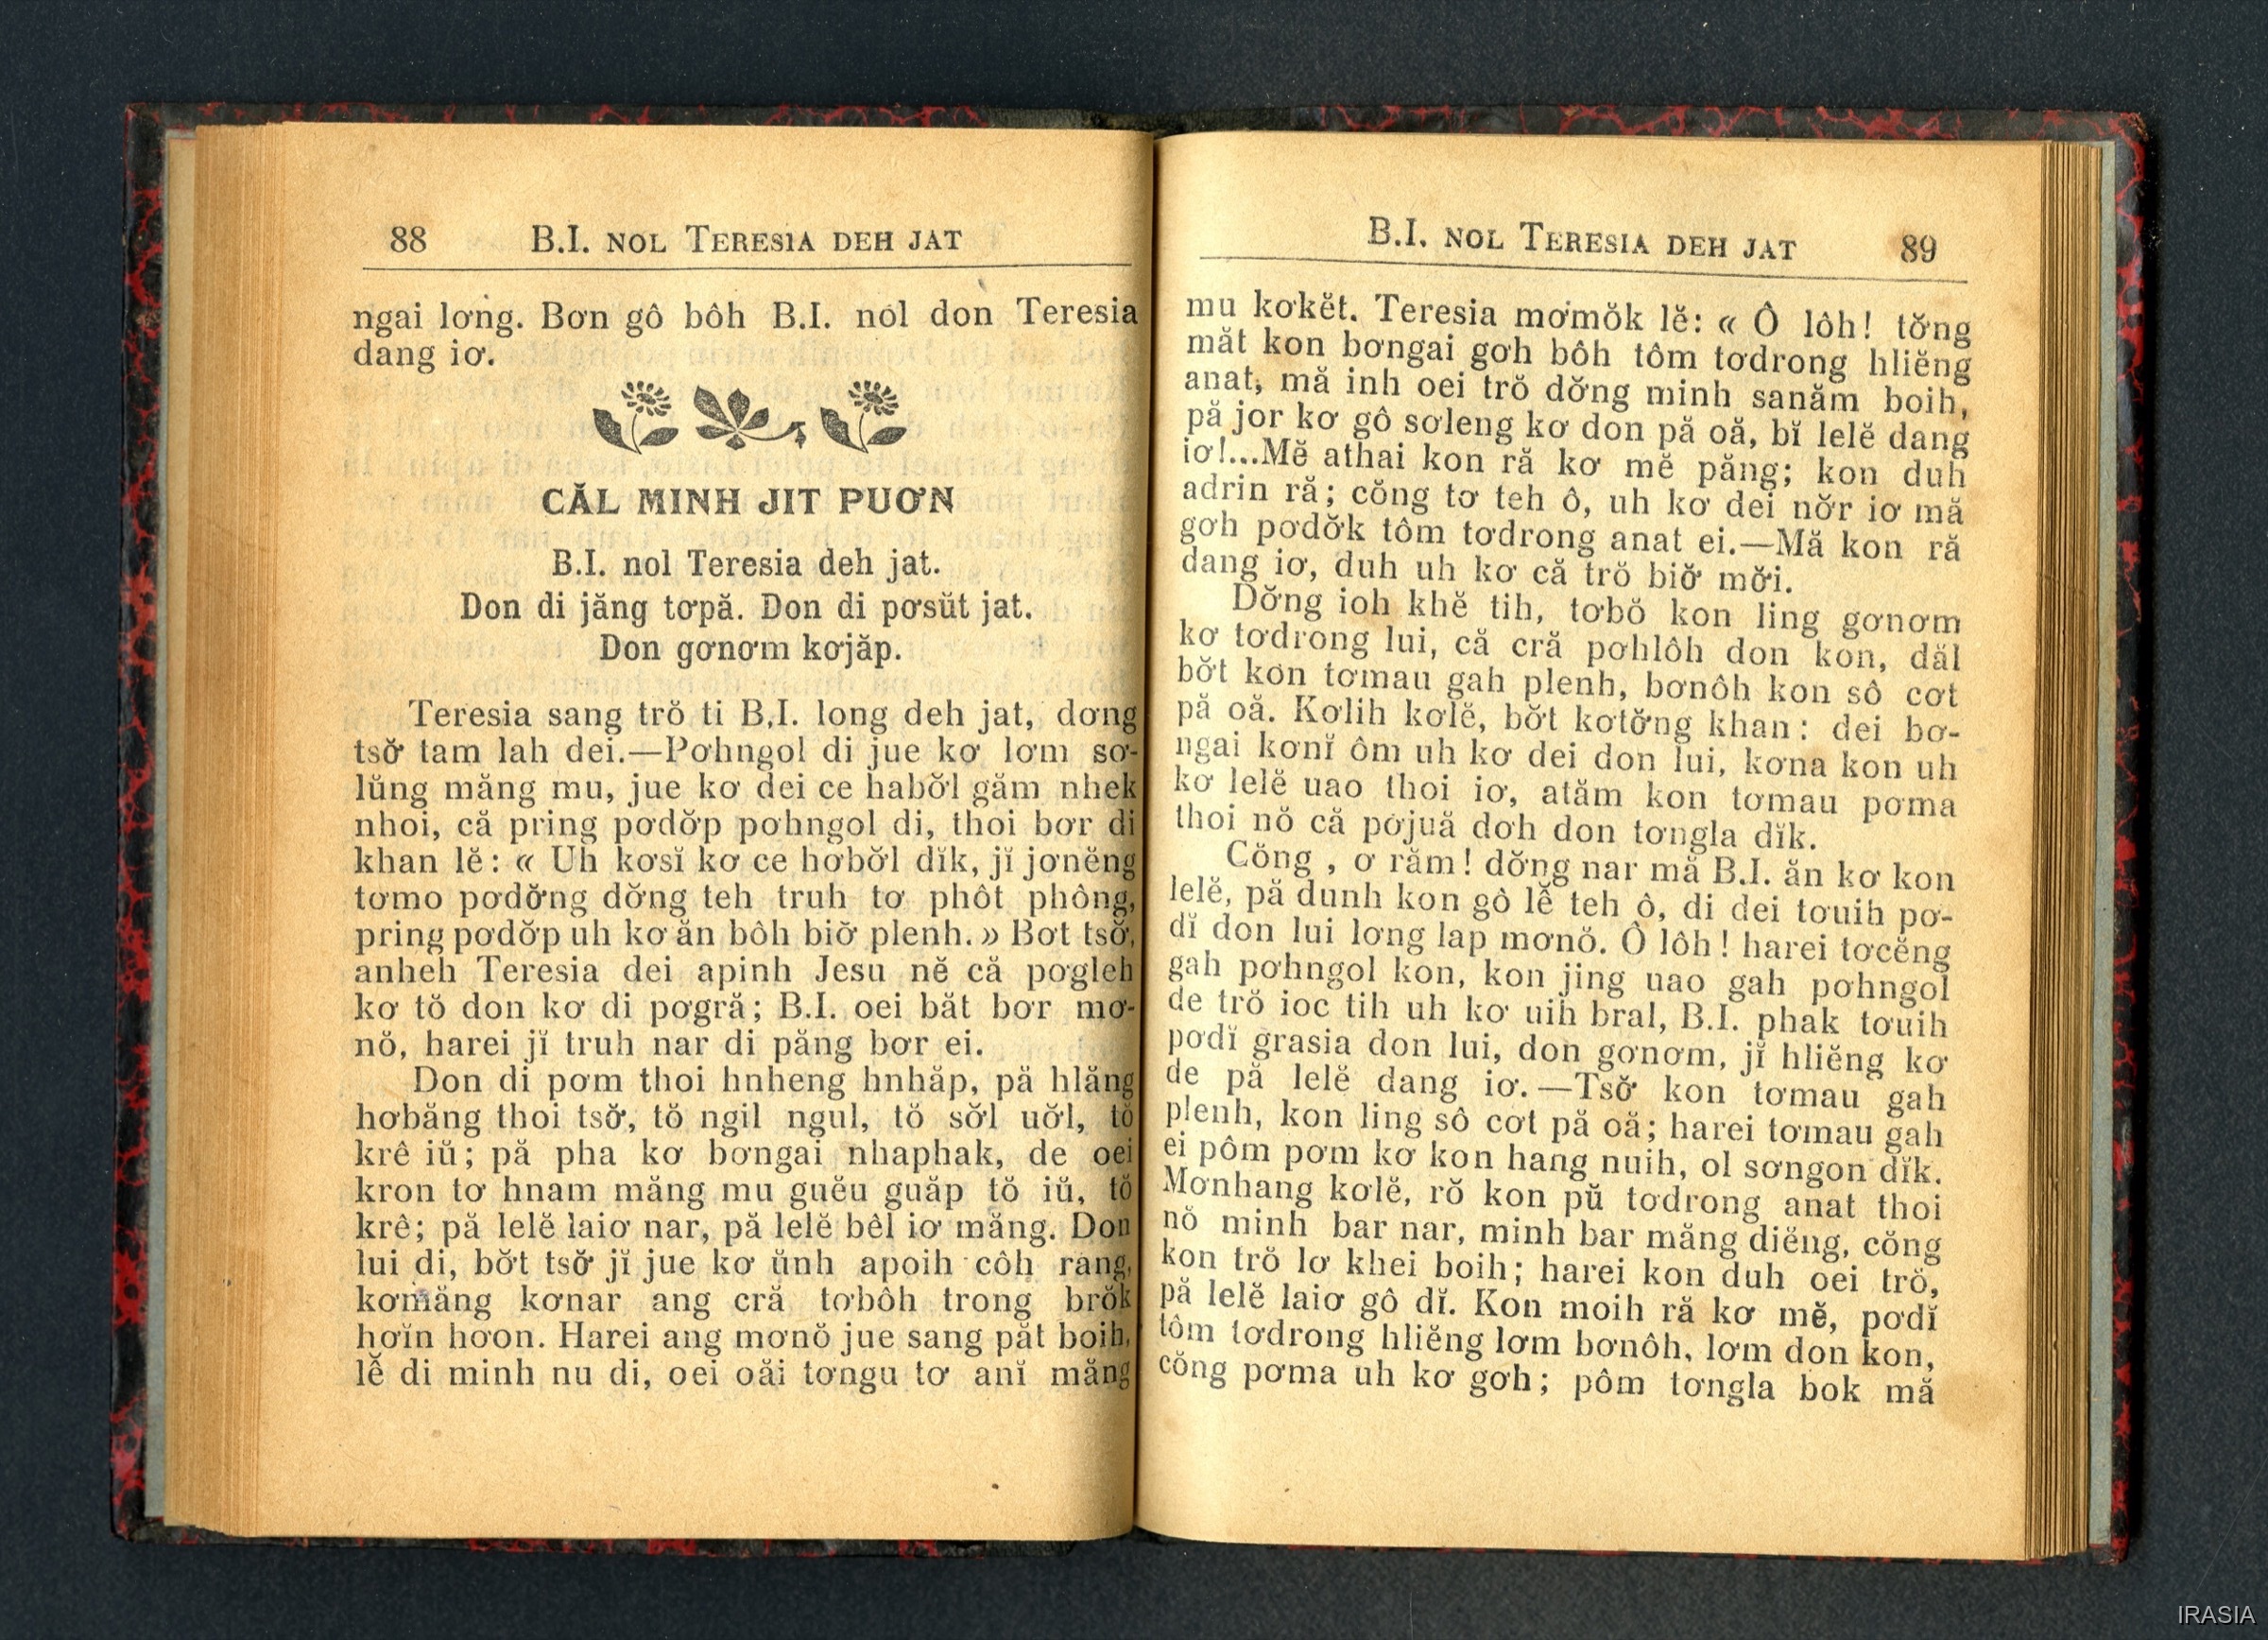 88 B.I. NOL TERESIA DEH JAT
ngai lơng. Bơn gô bôh B.I. nol don Teresia
dang iơ.
CĂL MINH JIT PUƠN
B.I. nol Teresia deh jat.
Don di jăng tơpă. Don di pơsŭt jat.
Don gơnơm kơjăp.
Teresia sang trŏ ti B.I. long deh jat, dơng
tsơ̆ tam lah dei.—Pơhngol di jue kơ lơm sơ-
lŭng măng mu, jue kơ dei ce habơ̆l găm nhek
nhoi, că pring pơdơ̆p pơhngol di, thoi bơr di
khan lĕ: « Uh kơsĭ kơ ce hơbơ̆l dĭk, jĭ jơnĕng
tơmo pơdơ̆ng dơ̆ng teh truh tơ phôt phông,
pring pơdơ̆p uh kơ ăn bôh biơ̆ plenh. » Bơt tsơ̆,
anheh Teresia dei apinh Jesu nĕ că pơgleh
kơ tŏ don kơ di pơgră; B.I. oei băt bơr mơ-
nŏ, harei jĭ truh nar di păng bơr ei.
Don di pơm thoi hnheng hnhăp, pă hlăng
hơbăng thoi tsơ̆, tŏ ngil ngul, tŏ sơ̆l uơ̆l, tŏ
krê iŭ; pă pha kơ bơngai nhaphak, de oei
kron tơ hnam măng mu guĕu guăp tŏ iŭ, tŏ
krê; pă lelĕ laiơ nar, pă lelĕ bêl iơ măng. Don
lui di, bơ̆t tsơ̆ jĭ jue kơ ŭnh apoih côh rang,
kơmăng kơnar ang cră tơbôh trong brŏk
hơĭn hơon. Harei ang mơnŏ jue sang păt boih,
lê̆ di minh nu di, oei oăi tơngu tơ anĭ măng
B.I. NOL TERESIA DEH JAT 89
mu kơkĕt. Teresia mơmŏk lĕ: « Ô lôh! tơ̆ng
măt kon bơngai gơh bôh tôm tơdrong hliĕng
anat, mă inh oei trŏ dơ̆ng minh sanăm boih,
pă jor kơ gô sơleng kơ don pă oă, bĭ lelĕ dang
iơ!...Mĕ athai kon ră kơ mĕ păng; kon duh
adrin ră; cŏng tơ teh ô, uh kơ dei nơ̆r iơ mă
gơh pơdơ̆k tôm tơdrong anat ei.—Mă kon ră
dang iơ, duh uh kơ că trŏ biơ̆ mơ̆i.
Dơ̆ng ioh khĕ tih, tơbŏ kon ling gơnơm
kơ tơdrong lui, că cră pơhlôh don kon, dăl
bơ̆t kon tơmau gah plenh, bơnôh kon sô cơt
pă oă. Kơlih kơlĕ, bơ̆t kơtơ̆ng khan: dei bơ-
ngai kơnĭ ôm uh kơ dei don lui, kơna kon uh
kơ lelĕ uao thoi iơ, atăm kon tơmau pơma
thoi nŏ că pơjuă dơh don tơngla dĭk.
Cŏng , ơ răm! dơ̆ng nar mă B.I. ăn kơ kon
lelĕ, pă dunh kon gô lê̆ teh ô, di dei tơuih pơ-
dĭ don lui lơng lap mơnŏ. Ô lôh! harei tơcĕng
gah pơhngol kon, kon jing uao gah pơhngol
de trŏ ioc tih uh kơ uih bral, B.I. phak tơuih
pơdĭ grasia don lui, don gơnơm, jĭ hliĕng kơ
de pă lelĕ dang iơ.—Tsơ̆ kon tơmau gah
plenh, kon ling sô cơt pă oă; harei tơmau gah
ei pôm pơm kơ kon hang nuih, ol sơngon dĭk.
Mơnhang kơlĕ, rŏ kon pŭ tơdrong anat thoi
nŏ minh bar nar, minh bar măng diĕng, cŏng
kon trŏ lơ khei boih; harei kon duh oei trŏ,
pă lelĕ laiơ gô dĭ. Kon moih ră kơ mĕ, pơdĭ
tôm tơdrong hliĕng lơm bơnôh, lơm don kon,
cŏng pơma uh kơ gơh; pôm tơngla bok mă
IRASIA